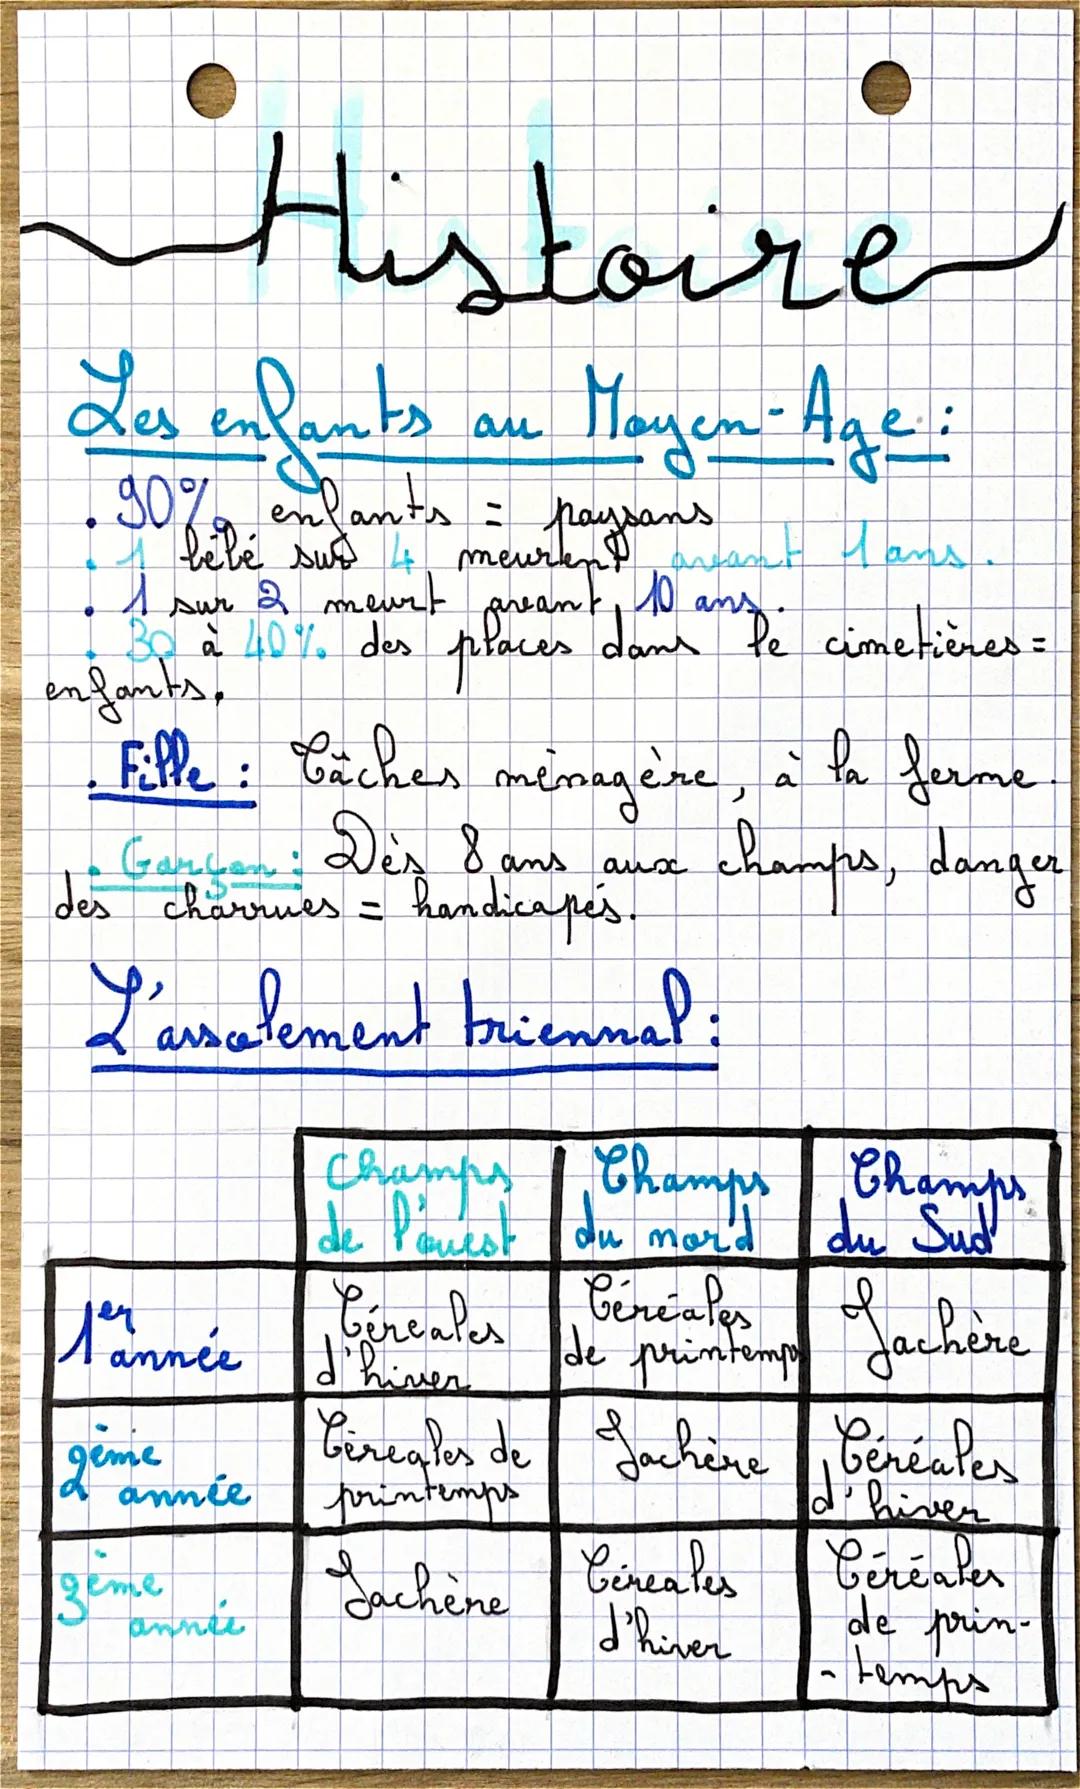 Histoire
Les enfants au Moyen-Age :
. 90% enfants = paysans
. 1 bébé sur 4 meurent avant 1 ans.
. 1 sur 2 meurt avant 10 ans.
. 30 à 40% des places dans le cimetières =
enfants.
. Fille : Tâches ménagère, à la ferme.
. Garçon : Dès 8 ans aux champs, danger
des charrues = handicapés.
L'assolement triennal :
Champs Champs Champs
de l'ouest du nord du Sud
1er année Céréales d'hiver Céréales de printemps Jachère
2ème année Céreales de printemps Jachère Céréales d'hiver
3ème année Jachère Céreales d'hiver Céréales de prin-
-temps